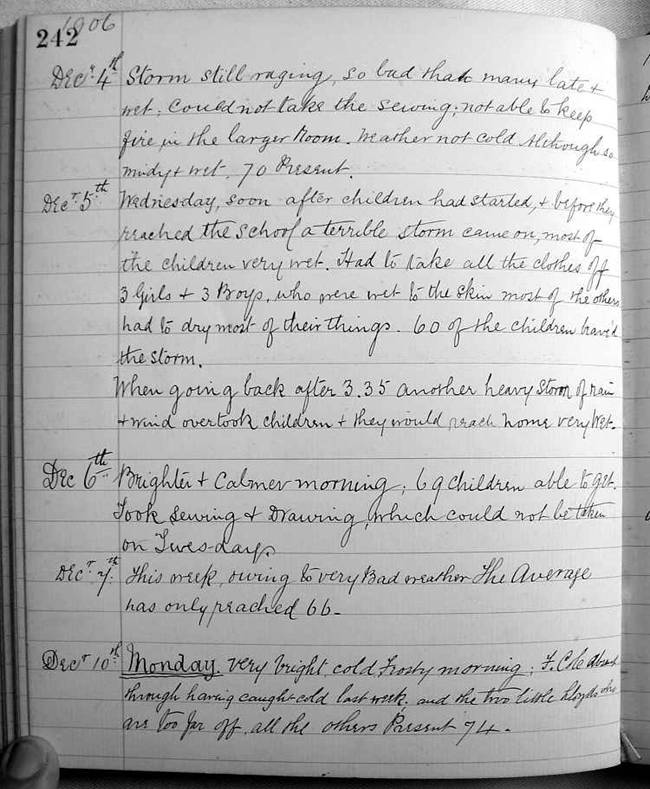 1906
242
Decr 4th Storm still raging, so bad that many late +
wet; could not take the sewing; not able to keep
fire in the larger Room. Weather not cold although so
windy + wet. 70 Present.
Decr 5th Wednesday, soon after children had started, + before they
reached the school a terrible storm came on, most of
the children very wet. Had to take all the clothes off
3 Girls + 3 Boys, who were wet to the skin most of the others
had to dry most of their things. 60 of the children braved
the storm.
When going back after 3.35 another heavy storm of rain
+ wind overtook children + they would reach home very wet.
Dec 6th Brighter + Calmer morning; 69 children able to get.
Took Sewing + Drawing, which could not be taken
on Tuesday.
Decr 7th This week, owing to very Bad weather The Average
has only reached 66-
Decr 10th Monday. very bright, cold Frosty morning; F. Cole absent
through having caught cold last week. and the two little Lloyds who
are too far off, all the others Present 74.